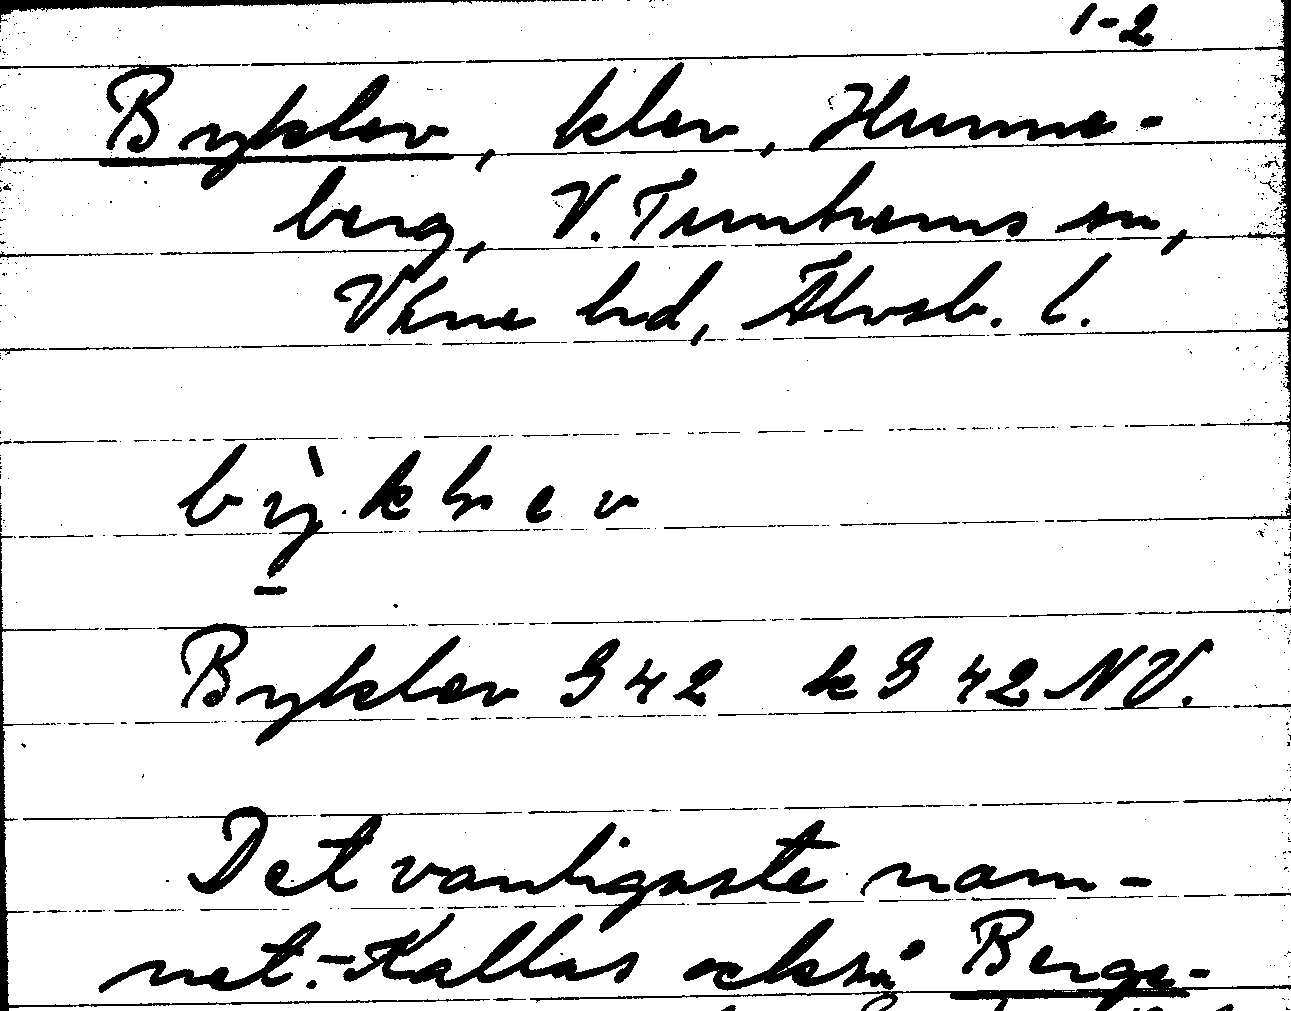 1-2
Byklev, klev, Hunne-
berg, V. Tunhems sn,
Väne hd, Älvsb. l.
Byklev 942 k 942 NV.
Det vanligaste nam-
net.- Kallas också Berge-